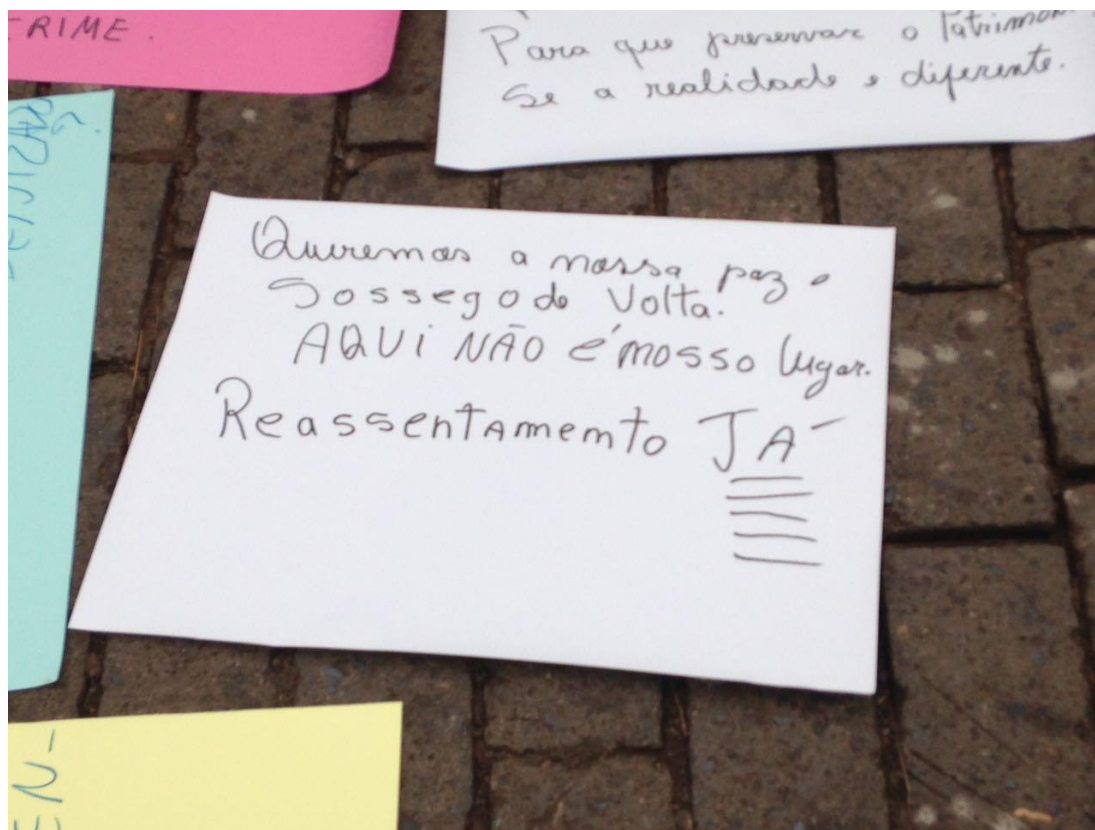 CRIME.
Para que preservar o Patrimon
Se a realidade e diferente.
Queremos a nossa paz e
Sossego de Volta!
AQUi NÃO é mosso lugar.
ReassentAmemto JÁ
EN-